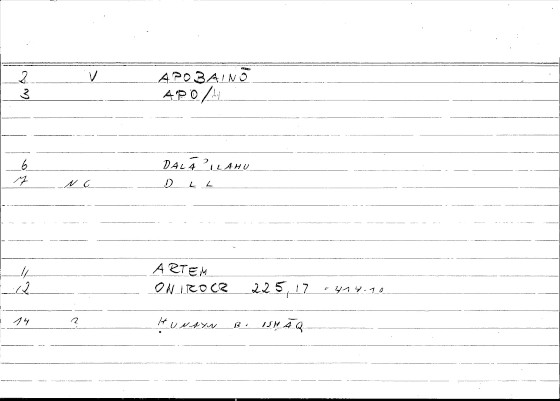 2 V APOBAINŌ
3 APO/H
6 DALĀʾILAHU
7 NC D L L
11 ARTEM
12 ONIROCR 225,17 - 414.10
14 ? ḤUNAYN B. ISḤĀQ